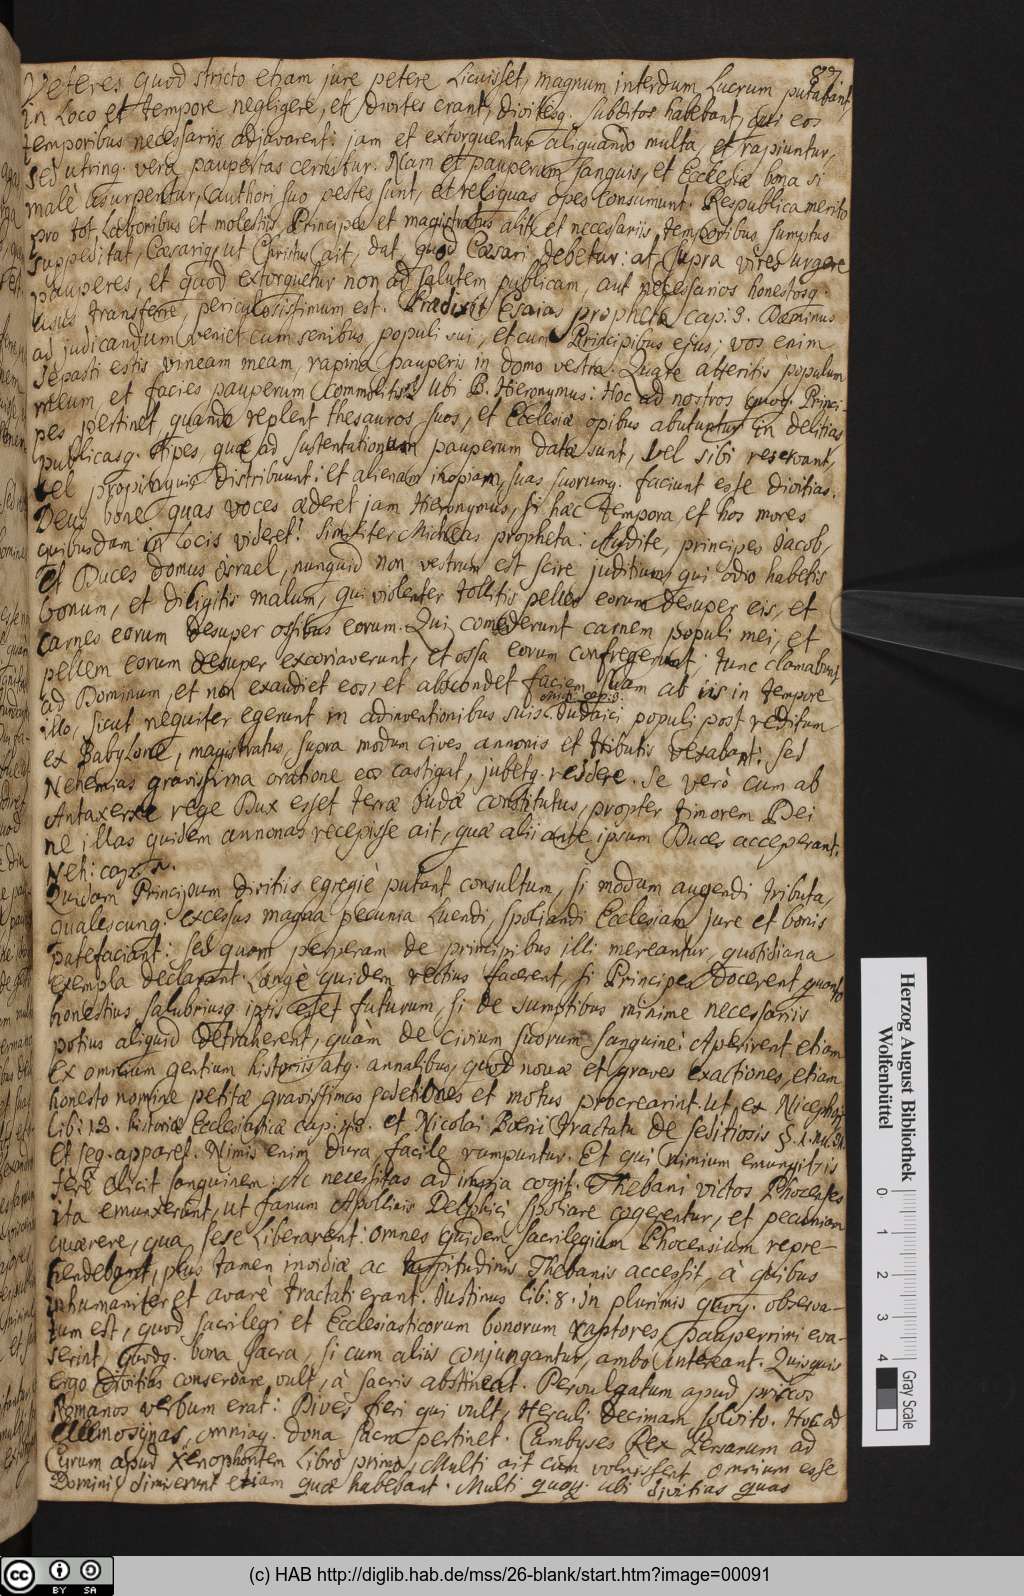 87
Veteres quod stricto etiam jure petere licuisset, magnum interdum lucrum putabant,
in loco et tempore negligere, et divites erant, divitesq. subditos habebant, qui eos
temporibus necessariis adjuvarent: jam et extorquentur aliquando multa, et rapiuntur,
sed utrinq. vera paupertas cernitur. Nam et pauperum sanguis, et Ecclesiæ bona si
malè usurpentur, authori suo pestes sunt, et reliquas opes consumunt. Respublica merito
pro tot laboribus et molestiis, Principes et magistratus alit, et necessariis temporibus sumptus
suppeditat, Cæsariq, ut Christus ait, dat, quod Cæsari debetur: at supra vires urgere
pauperes, et quod extorquetur non ad salutem publicam, aut necessarios honestosq.
usus transferre, periculosissimum est. Prædixit Esaias propheta cap: 3. Dominus
ad judicandum veniet cum senibus populi sui, et cum Principibus ejus: vos enim
depasti estis vineam meam, rapina pauperis in domo vestra. Quare atteritis populum
meum, et facies pauperum commolitis? Ubi B. Hieronymus: Hoc ad nostros quoq. Princi-
pes pertinet, quando replent thesauros suos, et Ecclesiæ opibus abutuntur in delitias
publicasq. stipes, quæ ad sustentationem pauperum datæ sunt, vel sibi reservant,
vel propinquis distribuunt: et alienam inopiam, suas suorumq. faciunt esse divitias.
Deus bone! quas voces æderet jam Hieronymus, si hæc tempora, et hos mores
quibusdam in locis videret! Similiter Micheas propheta: Audite, principes Jacob,
et Duces domus Israel, nunquid non vestrum est scire juditium, qui odio habetis
bonum, et diligitis malum, qui violenter tollitis pelles eorum desuper eis, et
carnes eorum desuper ossibus eorum. Qui comederunt carnem populi mei, et
pellem eorum desuper excoriaverunt, et ossa eorum confregerunt: tunc clamabunt
ad Dominum, et non exaudiet eos, et abscondet faciem suam ab iis in tempore
illo, sicut nequiter egerunt in adinventionibus suis. Judaici populi post reditum
ex Babylone, magistratus, supra modum cives annonis et tributis vexabant: sed
Nehemias gravissima oratione eos castigat, jubetq. reddere. Se verò cum ab
Artaxerxe rege Dux esset terræ Judæ constitutus, propter timorem Dei
ne illas quidem annonas recepisse ait, quæ alii ante ipsum Duces acceperant.
Neh: cap: 5.
Quidam Principum divitiis egregiè putant consultum, si modum augendi tributa,
qualescunq: excessus magna pecunia luendi, spoliandi Ecclesiam jure et bonis
patefaciant: sed quam perperam de principibus illi mereantur, quotidiana
exempla declarant. Longè quidem rectius facerent, si Principes docerent quanto
honestius salubriusq ipsis esset futurum, si de sumptibus minime necessariis
potius aliquid detraherent, quàm de civium suorum sanguine: Aperirent etiam
ex omnium gentium historiis atq. annalibus, quod novæ et graves exactiones, etiam
honesto nomine petitæ gravissimas seditiones et motus procrearint. ut ex Nicephori
lib: 12. historiæ Ecclesiasticæ cap: 43. et Nicolai Boerii tractatu de seditiosis §. 1. nu. 31.
et seq. apparet. Nimis enim dura, facile rumpuntur. Et qui nimium emungit, is
ferè elicit sanguinem. Ac necessitas ad impia cogit. Thebani victos Phocenses
ita emunxerunt, ut fanum Apollinis Delphici spoliare cogerentur, et pecuniam
quærere, qua sese liberarent: omnes quidem sacrilegium Phocensium repre-
hendebant, plus tamen invidiæ ac turpitudinis Thebanis accessit, à quibus
inhumaniter et avarè tractati erant. Justinus lib: 8. In plurimis quoq. observa-
tum est, quod sacrilegi et Ecclesiasticorum bonorum raptores, pauperrimi eva-
serint, quodq. bona sacra, si cum aliis conjungantur, ambo intereant. Quisquis
ergo divitias conservare vult, à sacris abstineat. Pervulgatum apud priscos
Romanos verbum erat: Dives fieri qui vult, Herculi decimam solvito. Hoc ad
elemosynas, omniaq. dona sacra pertinet. Cambyses Rex Persarum ad
Cyrum apud Xenophontem Libro primo, Multi ait cum voluissent omnium esse
Domini, dimiserunt etiam quæ habebant. Multi quoq: ubi divitias quas
Herzog August Bibliothek
Wolfenbüttel
0 1 2 3 4
Gray Scale
CC BY SA
(c) HAB http://diglib.hab.de/mss/26-blank/start.htm?image=00091